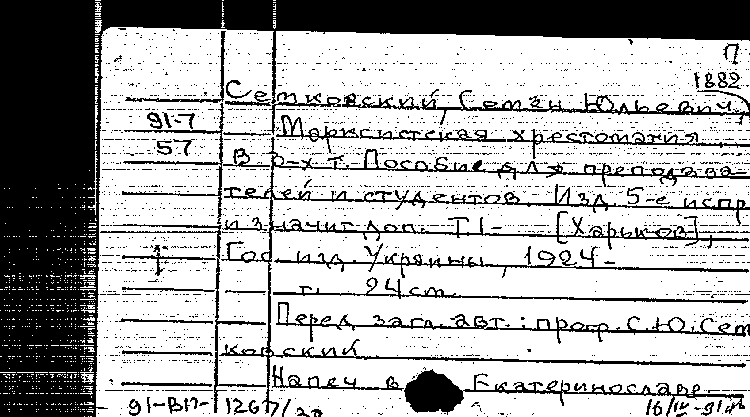 П
1882
Семковский, Семён Юльевич,
91-7 Марксистская хрестоматия.
57 В 2-х т. Пособие для преподава-
телей и студентов. Изд. 5-е испр
и значит. доп. Т. 1- [Харьков],
Гос. изд. Украины, 1924-
т. 24 см.
Перед загл. авт.: проф. С.Ю. Сем
ковский
Напеч. в Екатеринославе
91-ВП- 16/IV-91